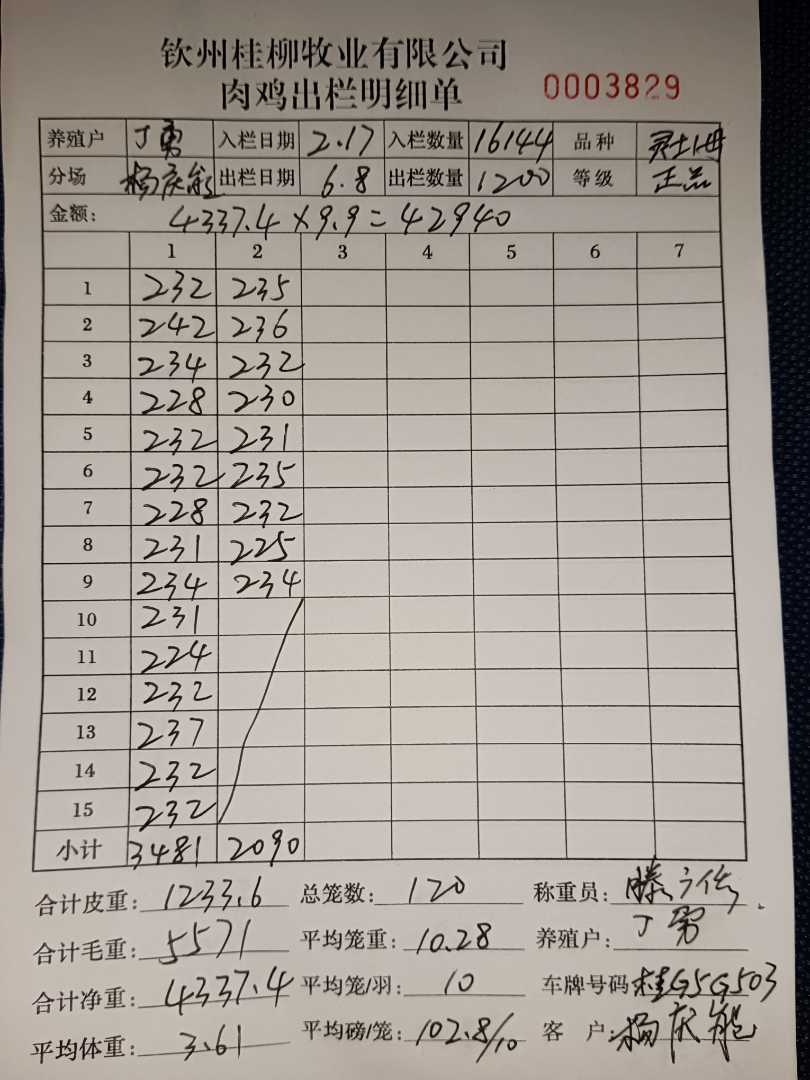 钦州桂柳牧业有限公司
肉鸡出栏明细单 0003829
养殖户 丁勇 入栏日期 2.17 入栏数量 16144 品种 灵土1母
分场 杨庆能 出栏日期 6.8 出栏数量 1200 等级 正品
金额: 4337.4×9.9=42940
1 2 3 4 5 6 7
1 232 235
2 242 236
3 234 232
4 228 230
5 232 231
6 232 235
7 228 232
8 231 225
9 234 234
10 231
11 224
12 232
13 237
14 232
15 232
小计 3481 2090
合计皮重: 1233.6 总笼数: 120 称重员: 滕
合计毛重: 5571 平均笼重: 10.28 养殖户: 丁勇
合计净重: 4337.4 平均笼/羽: 10 车牌号码 桂G5G503
平均体重: 3.61 平均磅/笼: 102.8/10 客 户: 杨庆能